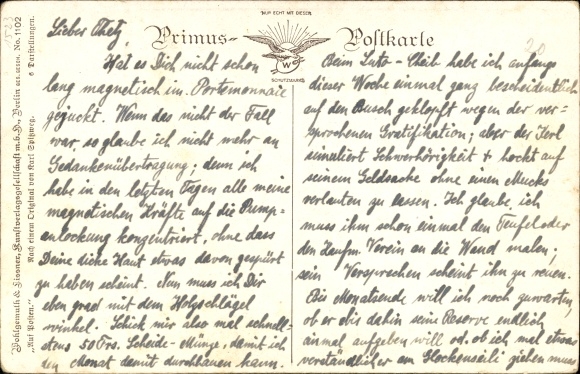 "NUR ECHT MIT DIESER
Primus-Postkarte
SCHUTZMARKE
W
Wohlgemuth & Lissner, Kunstverlagsgesellschaft m.b.H., Berlin No. 1102
"Auf Posten." Nach einem Original von Karl Spitzweg. 6 Darstellungen.
Lieber Thetz,
Hat es Dich nicht schon
lang magnetisch im Portemonnaie
gezuckt. Wenn das nicht der Fall
war, so glaube ich nicht mehr an
Gedankenübertragung, denn ich
habe in den letzten Tagen alle meine
magnetischen Kräfte auf die Pump-
anlockung konzentriert, ohne dass
Deine dicke Haut etwas davon gespürt
zu haben scheint. Nun muss ich Dir
eben grad mit dem Holzschlägel
winkel. Schick mir also mal schnell-
stens 50 Frs. Scheide-Münze, damit ich
den Monat damit durchhauen kann.
Beim Lutz-Cheib habe ich anfangs
dieser Woche einmal ganz bescheidentlich
auf den Busch geklopft wegen der ver-
sprochenen Gratifikation; aber der Kerl
simuliert Schwerhörigkeit + hockt auf
seinem Geldsacke ohne einen Mucks
verlauten zu lassen. Ich glaube, ich
muss ihm schon einmal den Teufel oder
den Kaufm. Verein an die Wand malen;
sein Versprechen scheint ihn zu reuen.
Bis Monatsende will ich noch zuwarten,
ob er bis dahin seine Reserve endlich
einmal aufgeben will od. ob ich mal etwas
verständlicher am Glockenseili ziehen muss